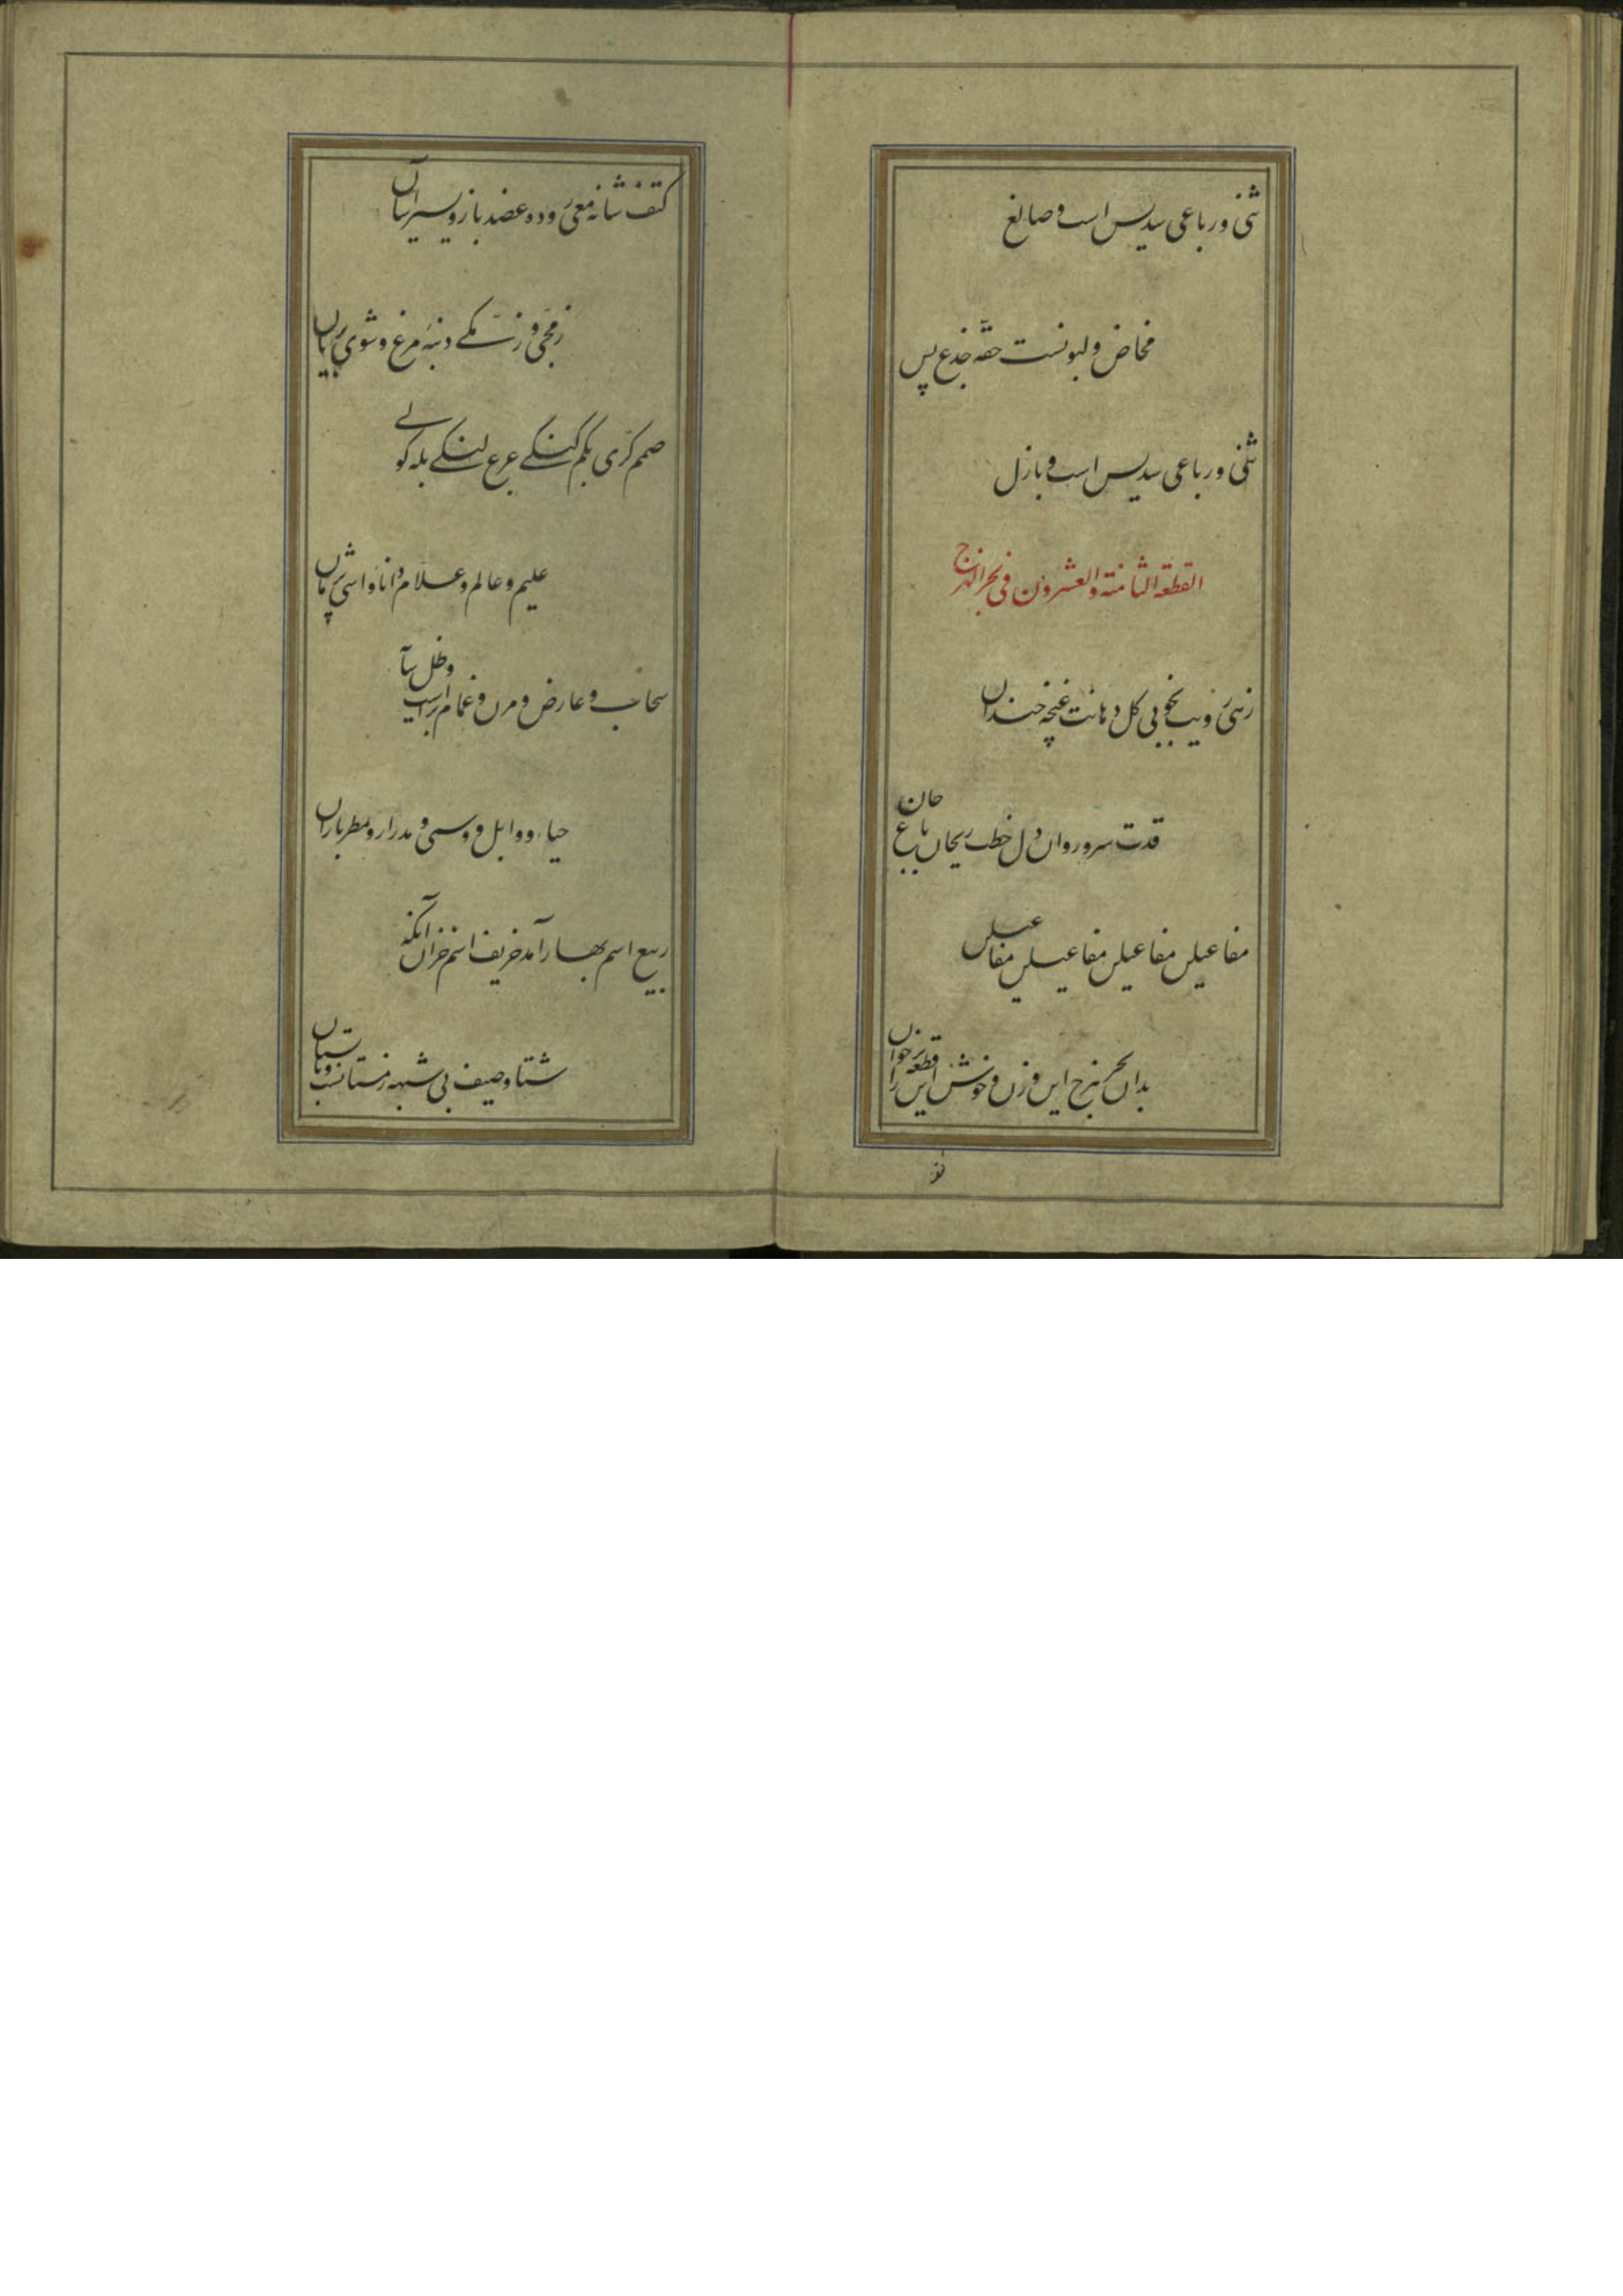 ثنی و رباعی سدیس است و صالغ
مخاض و لبونست حقه جذع پس
ثنی و رباعی سدیس است و بازل
القطعة الثامنة والعشرون فی بحر الهزج
زهی رویت بخوبی گل دهانت غنچه خندان
قدت سرو روان دل خطت ریحان باغ جان
مفاعیلن مفاعیلن مفاعیلن مفاعیلن
بدان بحر هزج این وزن و خوش این قطعه را برخوان
کتف شانه معی روده عضد بازو
زمجی و زمکی دنبه مرغ و شوی
صمم کری بکم گنگی عرج لنگی بله کولی
علیم و عالم و علام دانا و اسی پژمان
سحاب و عارض و مزن و غمام ابراست و ظل سآ
حیاء و وابل و وسمی و مدرار و مطر باران
ربیع اسم بهار آمد خریف اسم خزان آنگه
شتا و صیف بی شبهه زمستانست و تابستان